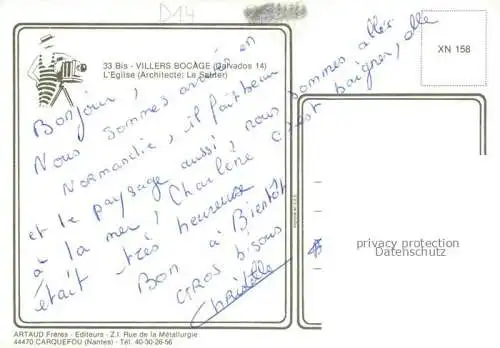 D14
33 Bis - VILLERS BOCAGE (Calvados 14)
L'Eglise (Architecte: Le Sauter)
XN 158
Bonjour,
Nous sommes arrivés en
Normandie, il fait beau
et le paysage aussi, nous sommes allés
à la mer, Charlène c'est baigner, elle
était très heureuse
Bon à Bientôt
GROS bisous
Christelle
privacy protection
Datenschutz
ARTAUD Frères - Editeurs - Z.I. Rue de la Métallurgie
44470 CARQUEFOU (Nantes) - Tél. 40-30-26-56